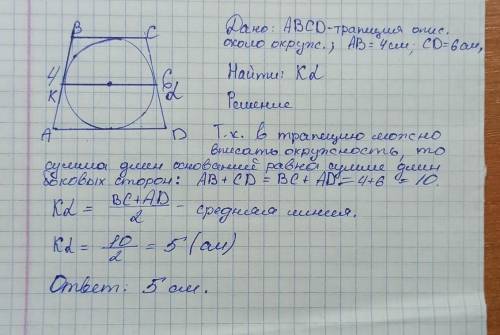 B C
4 6
K L
A D
Дано: ABCD-трапеция опис.
около окруж.; AB=4см; CD=6см,
Найти: KL
Решение
Т.к. в трапецию можно
вписать окружность, то
сумма длин оснований равна сумме длин
боковых сторон: AB+CD=BC+AD=4+6=10.
KL = BC+AD/2 - средняя линия.
KL = 10/2 = 5 (см)
Ответ: 5 см.